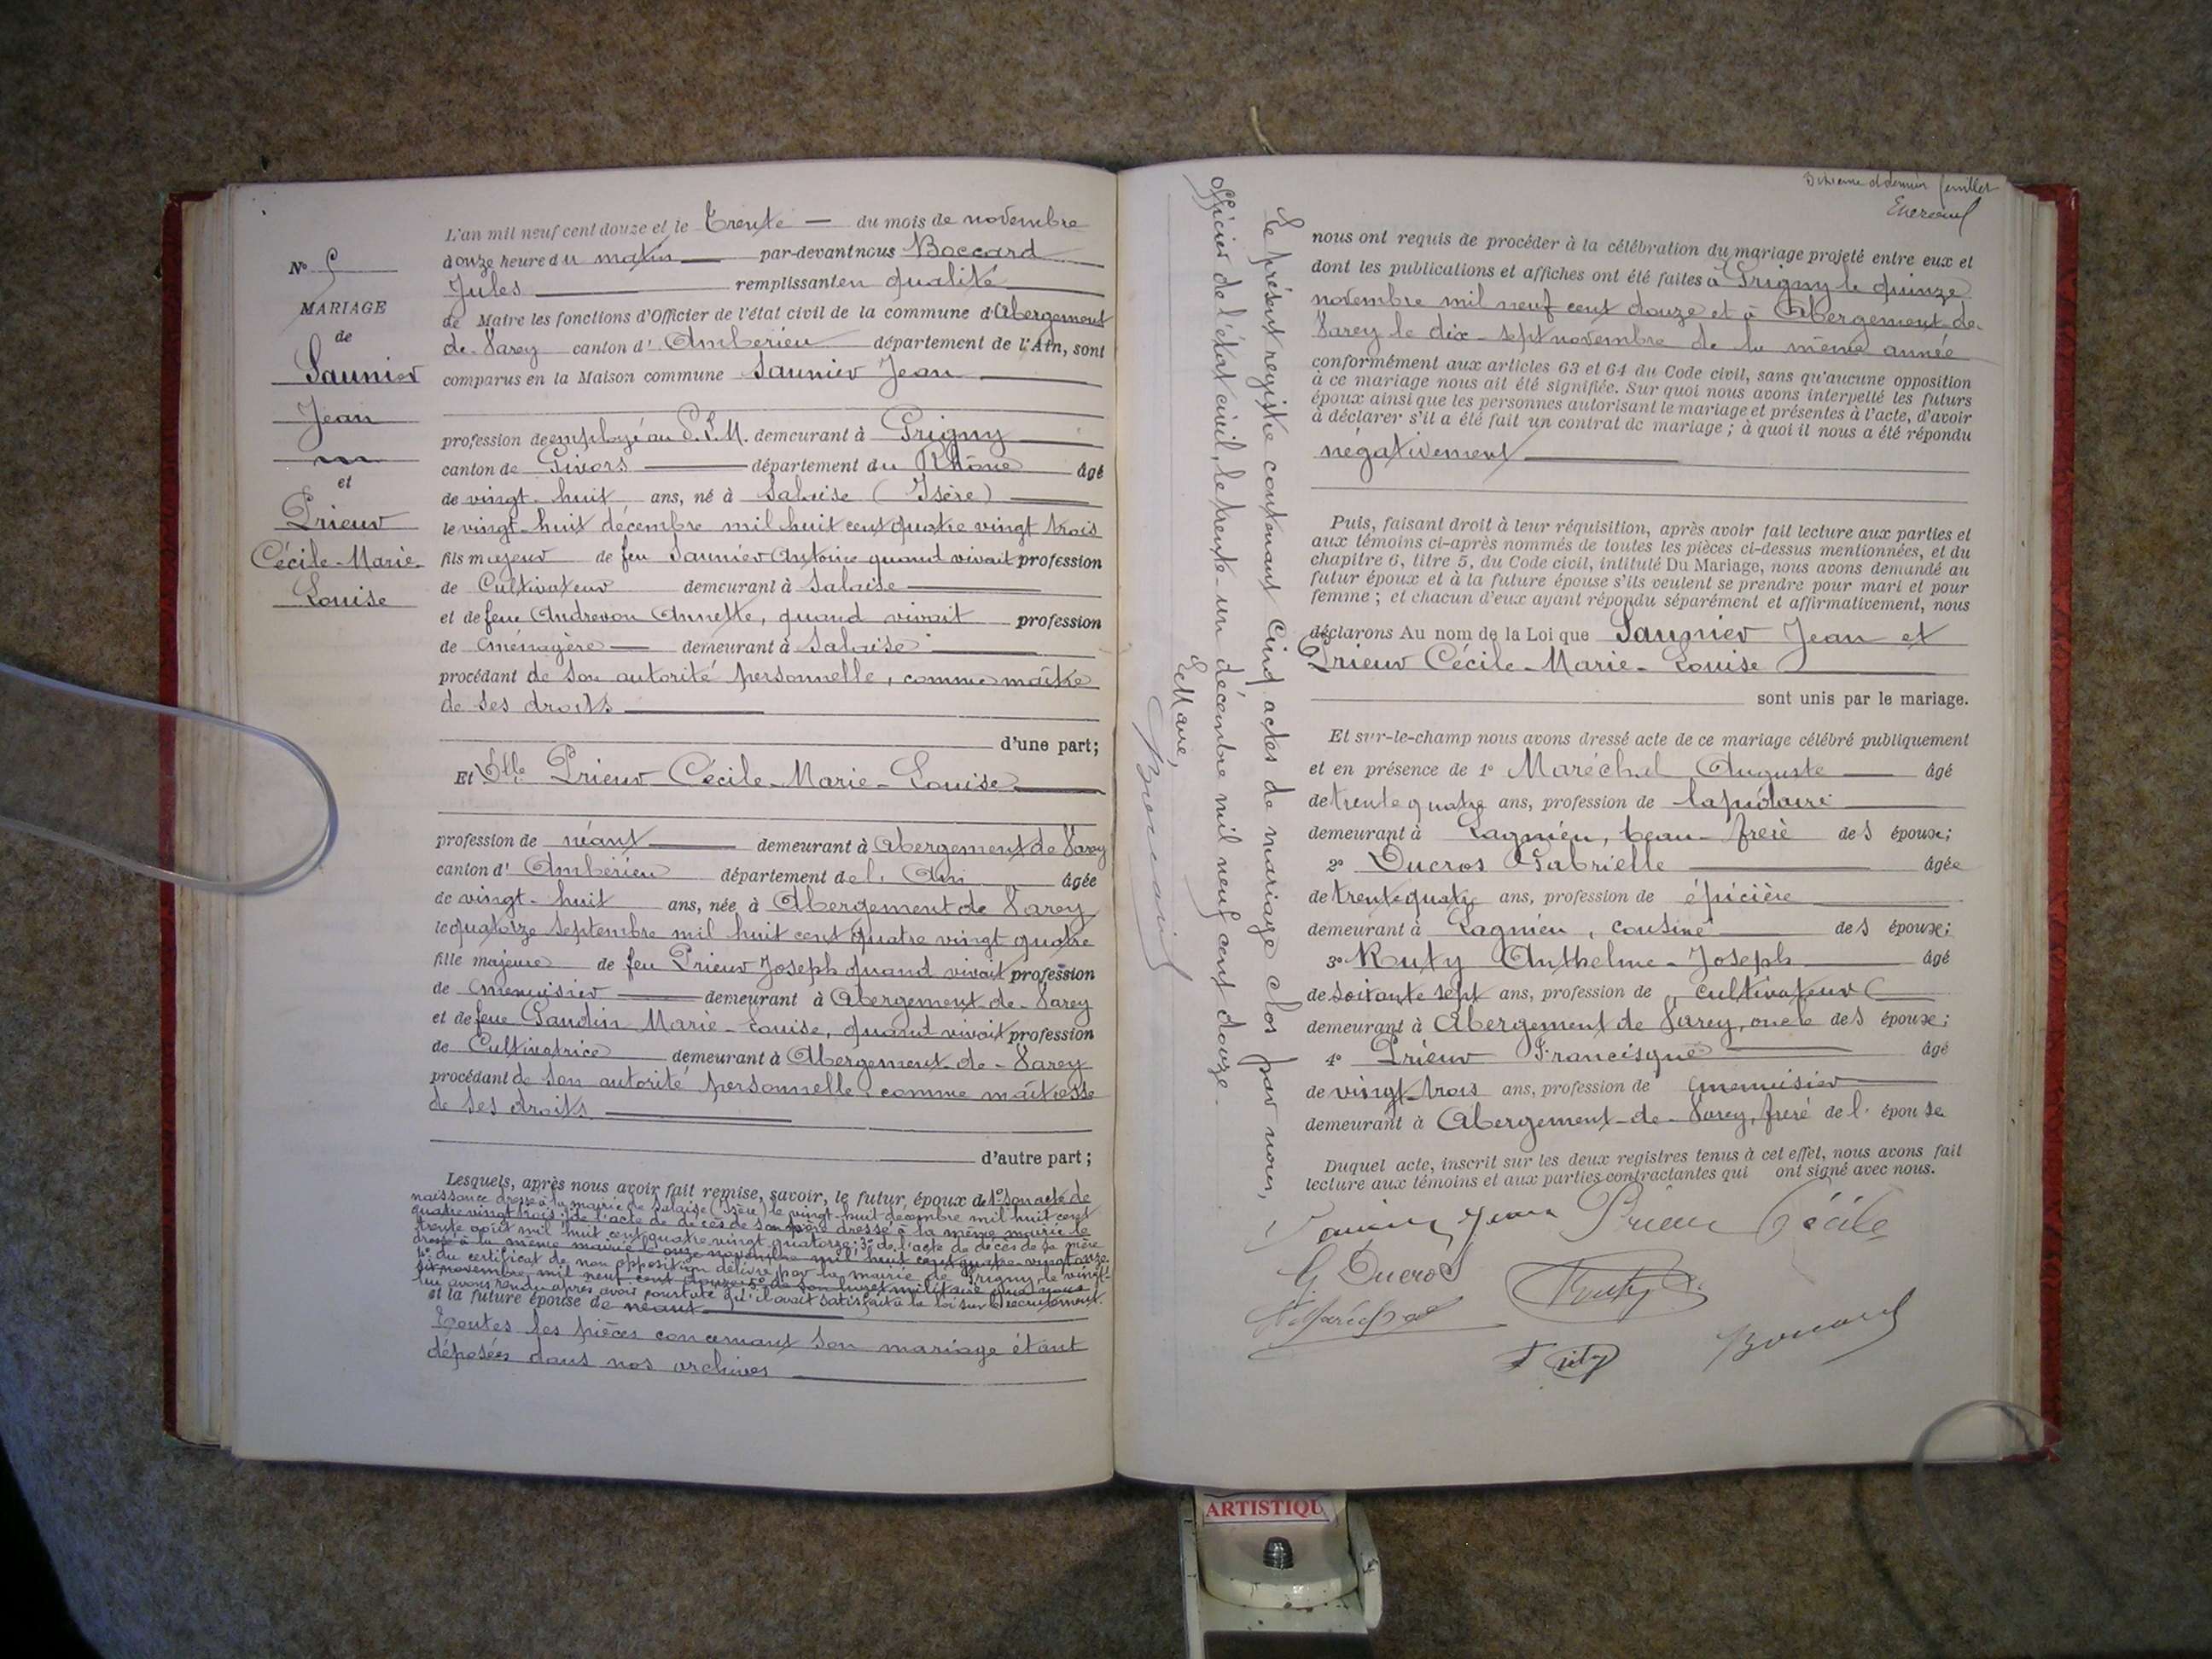 L'an mil neuf cent douze et le Trente — du mois de novembre
à onze heure du matin — par-devant nous Boccard
Jules — remplissant en qualité
de Maire les fonctions d'Officier de l'état civil de la commune d'Abergement
de-Varey canton d' Ambérieu département de l'Ain, sont
comparus en la Maison commune Saunier Jean
profession de employé au P.L.M. demeurant à Grigny
canton de Givors département du Rhône âgé
de vingt-huit ans, né à Salaise (Isère)
le vingt-huit décembre mil huit cent quatre vingt trois
fils majeur de feu Saunier Antoine quand vivait profession
de Cultivateur demeurant à Salaise
et de feue Andrevon Annette, quand vivait profession
de ménagère demeurant à Salaise
procédant de son autorité personnelle, comme maître
de ses droits
d'une part;
Et Dlle Prieur Cécile-Marie-Louise
profession de néant demeurant à Abergement de Varey
canton d' Ambérieu département de l' Ain âgée
de vingt-huit ans, née à Abergement de Varey
le quatorze septembre mil huit cent quatre vingt quatre
fille majeure de feu Prieur Joseph quand vivait profession
de menuisier demeurant à Abergement-de-Varey
et de feue Gaudin Marie-Louise, quand vivait profession
de Cultivatrice demeurant à Abergement-de-Varey
procédant de son autorité personnelle comme maîtresse
de ses droits
d'autre part;
Lesquels, après nous avoir fait remise, savoir, le futur, époux de 1° son acte de
naissance dressé à la mairie de Salaise (Isère) le vingt-huit décembre mil huit cent
quatre vingt trois; de l'acte de décès de son père dressé à la même mairie le
trente août mil huit cent quatre vingt quatorze; 3° de l'acte de décès de sa mère
dressé à la même mairie le onze novembre mil huit cent quatre-vingt onze
4° du certificat de non opposition délivré par la mairie de Grigny le vingt-
six novembre mil neuf cent douze; 5° de son livret militaire que nous
lui avons rendu après avoir constaté qu'il avait satisfait à la loi sur le recrutement.
et la future épouse de néant
Toutes les pièces concernant son mariage étant
déposées dans nos archives
N° 5
MARIAGE
de
Saunier
Jean
et
Prieur
Cécile-Marie-
Louise
et dernier feuillet
Le présent registre contenant Cinq actes de mariage clos par nous,
officier de l'état civil, le trente-un décembre mil neuf cent douze.
Le Maire,
Boccard
nous ont requis de procéder à la célébration du mariage projeté entre eux et
dont les publications et affiches ont été faites à Grigny le quinze
novembre mil neuf cent douze et à Abergement-de-
Varey le dix-sept novembre de la même année
conformément aux articles 63 et 64 du Code civil, sans qu'aucune opposition
à ce mariage nous ait été signifiée. Sur quoi nous avons interpellé les futurs
époux ainsi que les personnes autorisant le mariage et présentes à l'acte, d'avoir
à déclarer s'il a été fait un contrat de mariage; à quoi il nous a été répondu
négativement
Puis, faisant droit à leur réquisition, après avoir fait lecture aux parties et
aux témoins ci-après nommés de toutes les pièces ci-dessus mentionnées, et du
chapitre 6, titre 5, du Code civil, intitulé Du Mariage, nous avons demandé au
futur époux et à la future épouse s'ils veulent se prendre pour mari et pour
femme; et chacun d'eux ayant répondu séparément et affirmativement, nous
déclarons Au nom de la Loi que Saunier Jean et
Prieur Cécile-Marie-Louise
sont unis par le mariage.
Et sur-le-champ nous avons dressé acte de ce mariage célébré publiquement
et en présence de 1° Maréchal Auguste âgé
de trente quatre ans, profession de lapidaire
demeurant à Lagnieu, beau-frère des époux;
2° Ducros Gabrielle âgée
de trente quatre ans, profession de épicière
demeurant à Lagnieu, cousine des époux;
3° Ruty Anthelme-Joseph âgé
de soixante sept ans, profession de cultivateur
demeurant à Abergement de Varey, oncle des époux;
4° Prieur Francisque âgé
de vingt-trois ans, profession de menuisier
demeurant à Abergement-de-Varey, frère de l' épouse
Duquel acte, inscrit sur les deux registres tenus à cet effet, nous avons fait
lecture aux témoins et aux parties contractantes qui ont signé avec nous.
Saunier Jean Prieur Cécile
G. Ducros Ruty
A. Maréchal
Boccard
ARTISTIQU